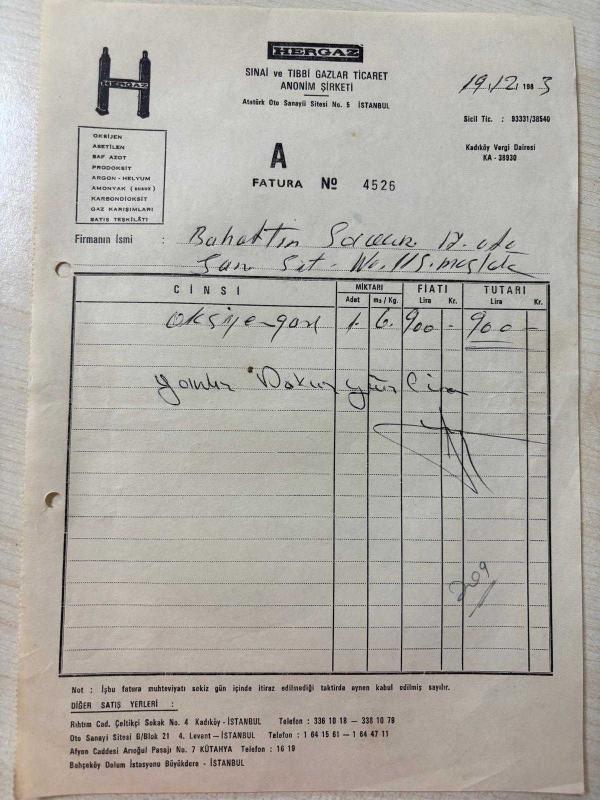 HERGAZ
HERGAZ
SINAİ ve TIBBİ GAZLAR TİCARET
ANONİM ŞİRKETİ
Atatürk Oto Sanayii Sitesi No. 5 İSTANBUL
19.12.1983
Sicil Tic. : 93331/38540
Kadıköy Vergi Dairesi
KA - 38930
OKSİJEN
ASETİLEN
SAF AZOT
PRODOKSİT
ARGON - HELYUM
AMONYAK
KARBONDİOKSİT
GAZ KARIŞIMLARI
SATIŞ TEŞKİLÂTI
A
FATURA No 4526
Firmanın İsmi : Bahattin
CİNSİ MİKTARI FİATI TUTARI
Adet m₃ / Kg. Lira Kr. Lira Kr.
1. 6. 900 - 900 -
Yalnız Dokuz yüz Lira
209
Not : İşbu fatura muhteviyatı sekiz gün içinde itiraz edilmediği taktirde aynen kabul edilmiş sayılır.
DİĞER SATIŞ YERLERİ :
Rıhtım Cad. Çeltikçi Sokak No. 4 Kadıköy - İSTANBUL Telefon : 336 10 18 — 338 10 79
Oto Sanayi Sitesi B/Blok 21 4. Levent — İSTANBUL Telefon : 1 64 15 61 — 1 64 47 11
Afyon Caddesi Arıoğul Pasajı No. 7 KÜTAHYA Telefon : 16 19
Bahçeköy Dolum İstasyonu Büyükdere - İSTANBUL